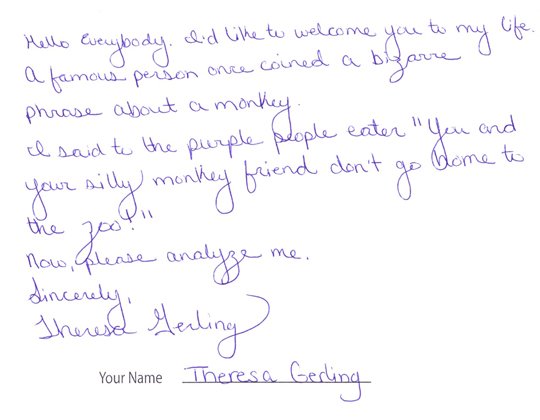 Hello Everybody. I'd like to welcome you to my life.
A famous person once coined a bizarre
phrase about a monkey.
I said to the purple people eater "You and
your silly monkey friend don't go home to
the zoo!"
Now, please analyze me.
Sincerely,
Theresa Gerling
Your Name Theresa Gerling